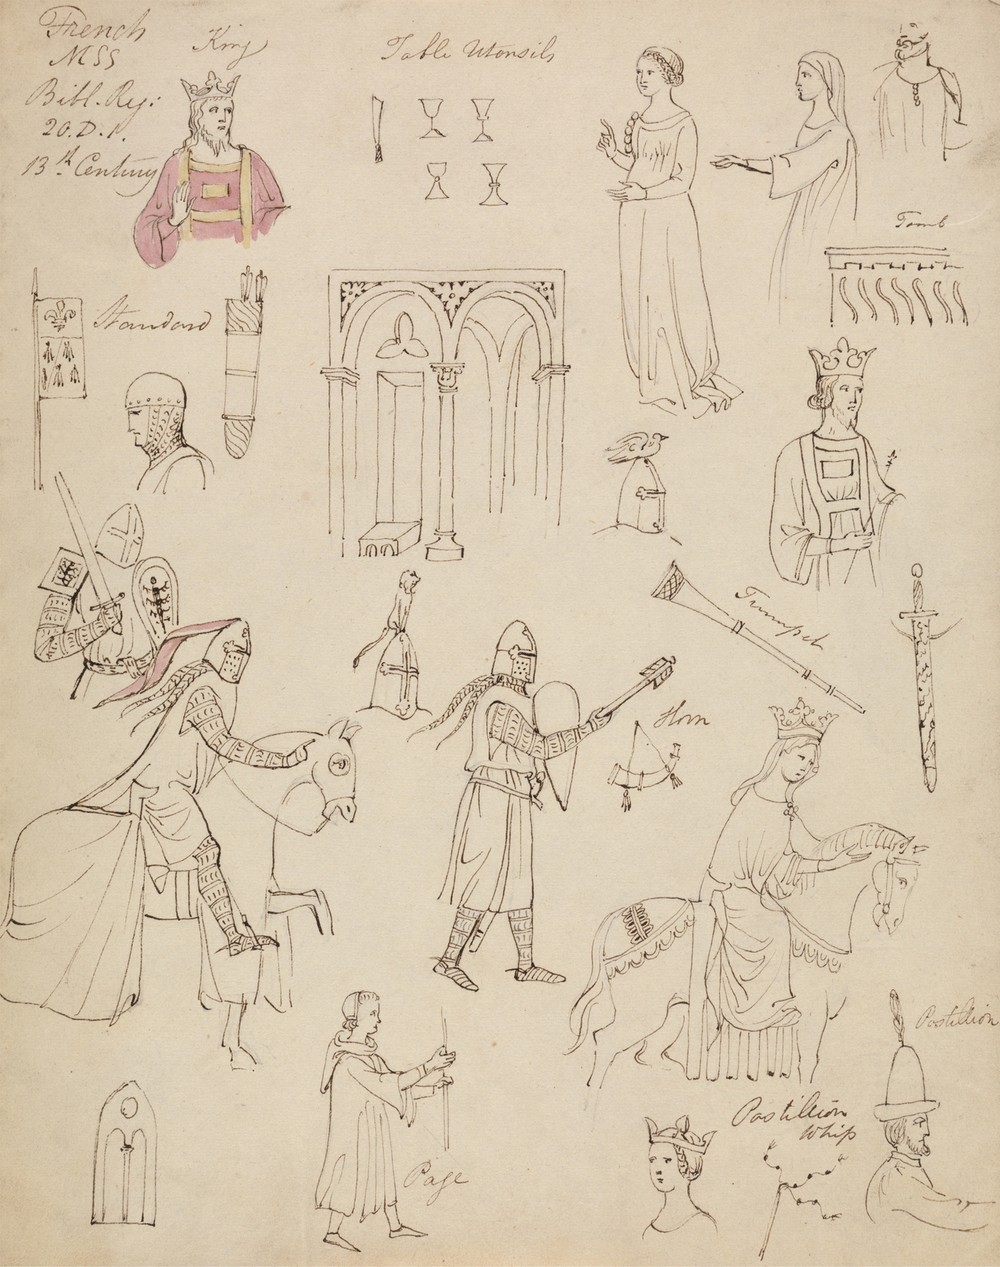 French
MSS
Bibl. Reg:
20. D. 1.
13th Century
King
Table Utensils
Tomb
Standard
Trumpet
Horn
Postillion
Page
Postillion
Whip